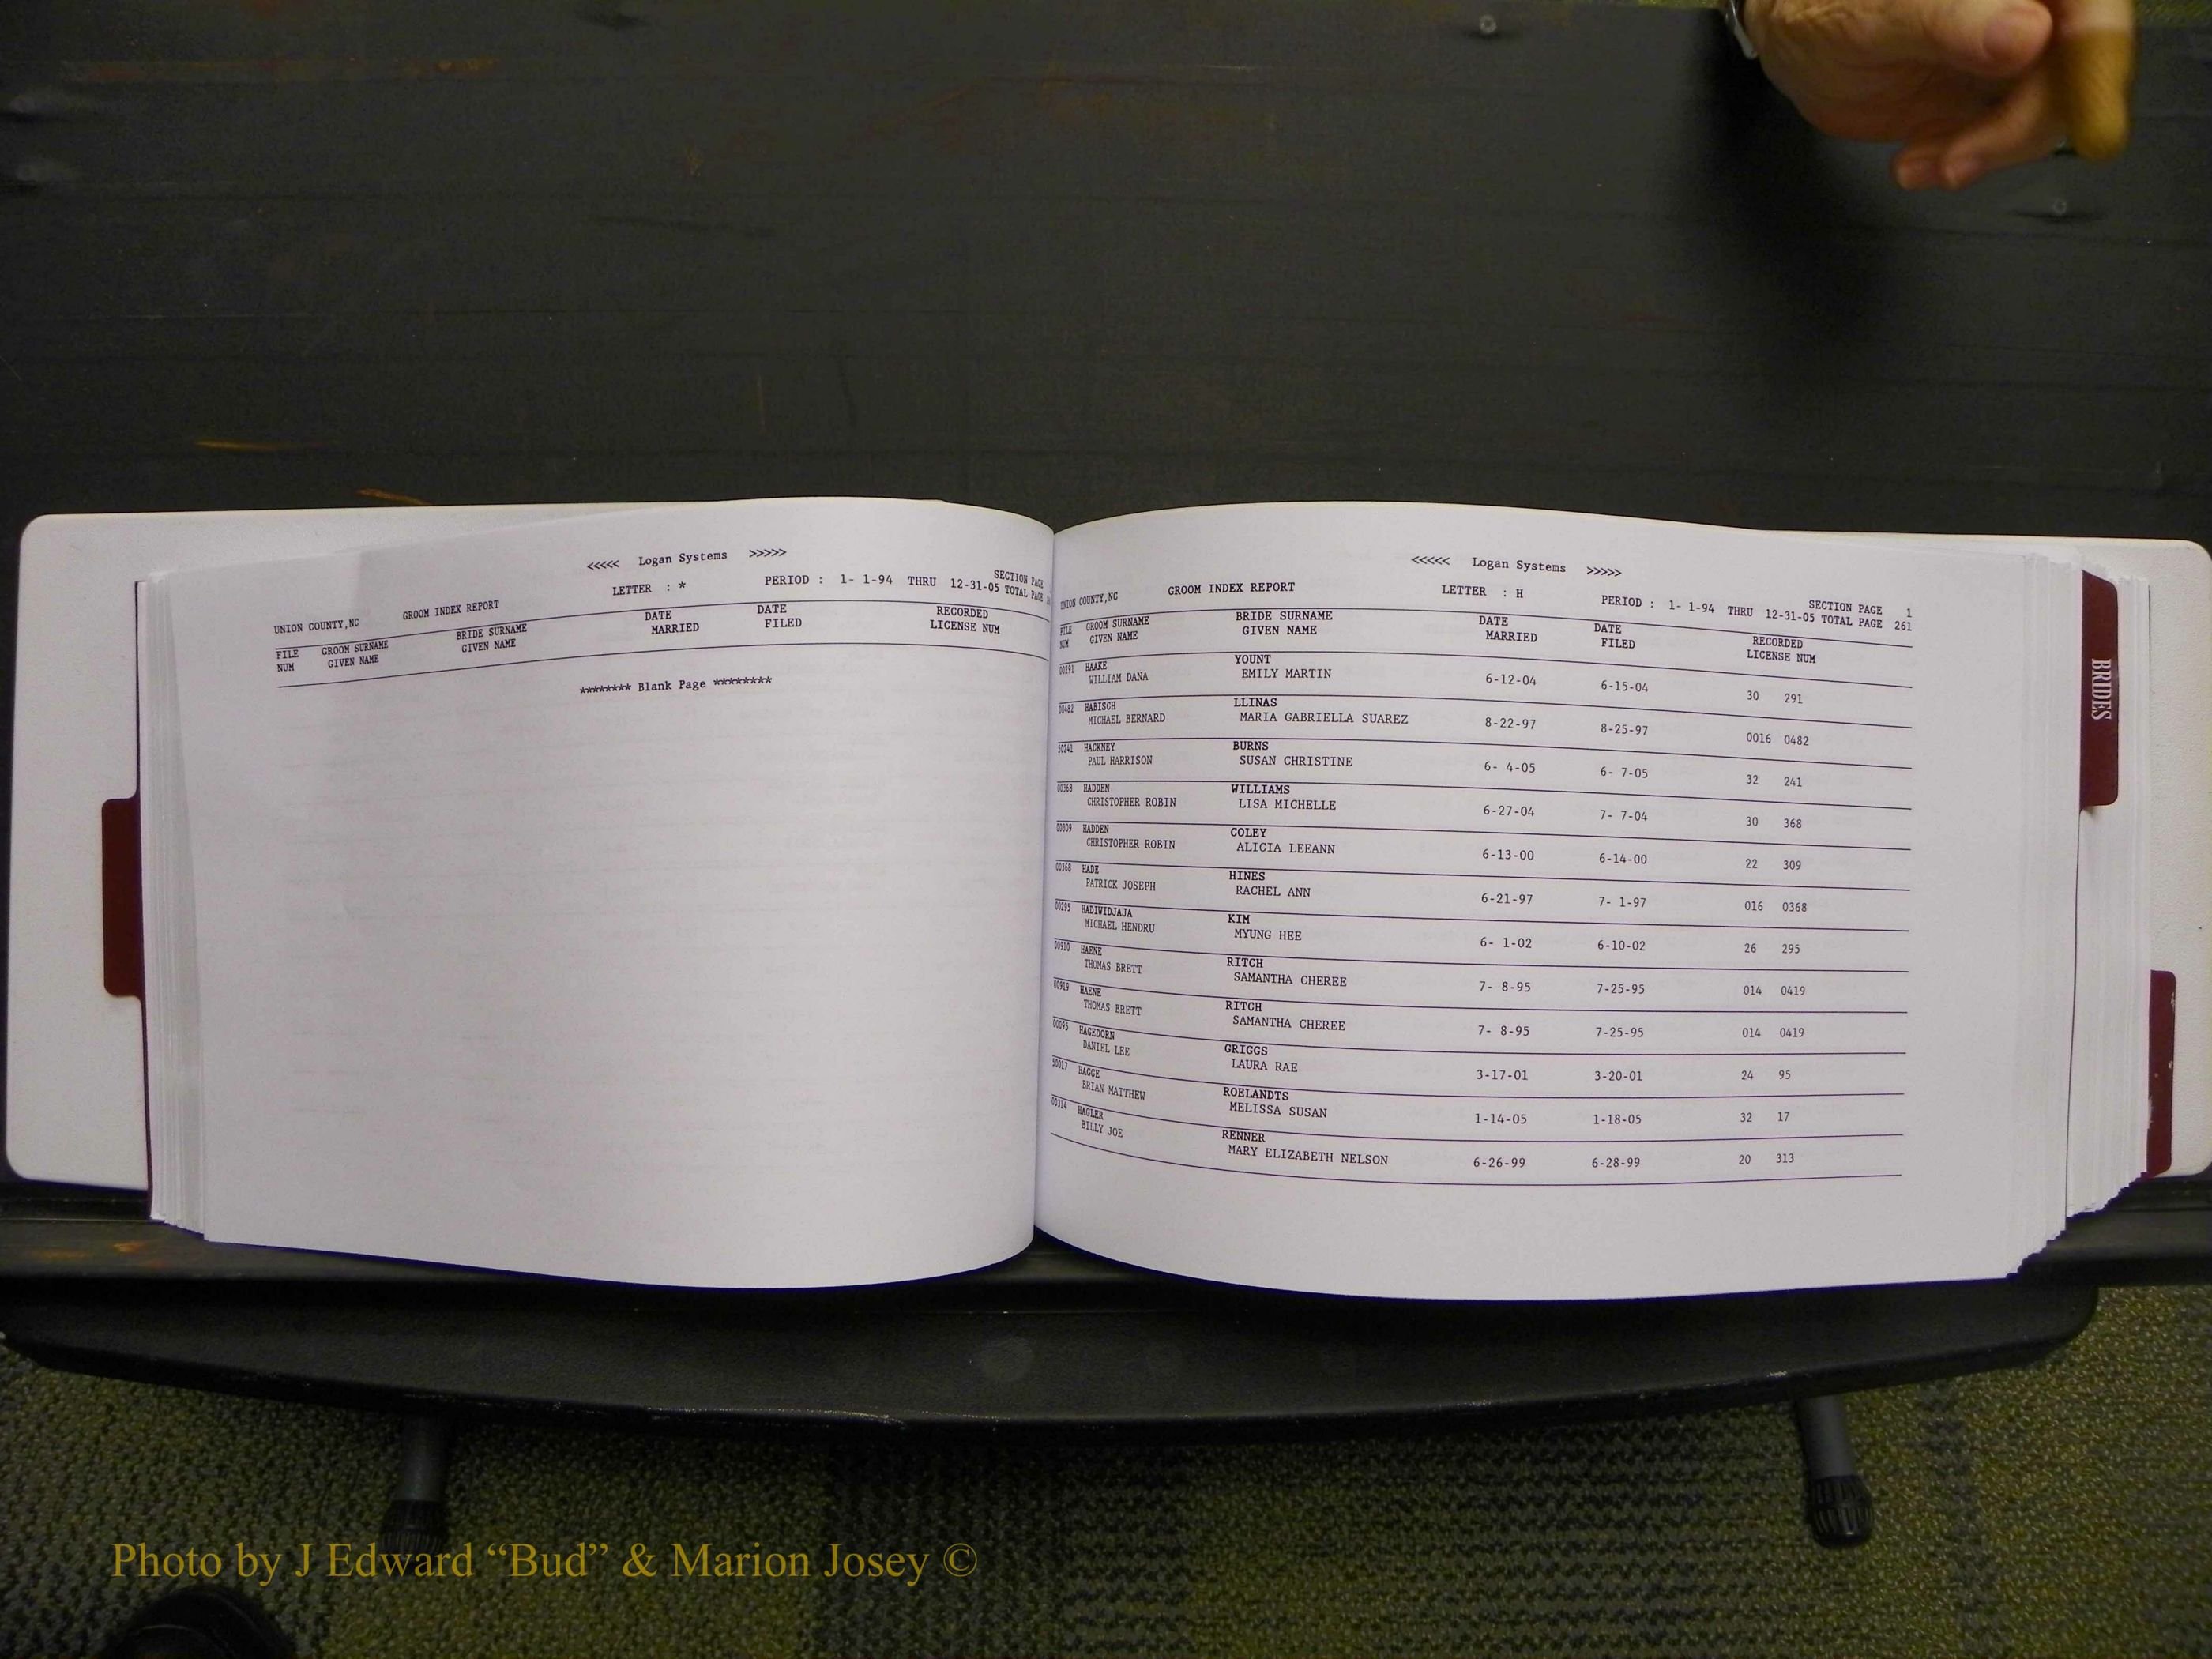 <<<<< Logan Systems >>>>>
LETTER : * PERIOD : 1- 1-94 THRU 12-31-05 SECTION PAGE
TOTAL PAGE
UNION COUNTY,NC GROOM INDEX REPORT
FILE GROOM SURNAME BRIDE SURNAME DATE DATE RECORDED
NUM GIVEN NAME GIVEN NAME MARRIED FILED LICENSE NUM
******** Blank Page ********
<<<<< Logan Systems >>>>>
UNION COUNTY,NC GROOM INDEX REPORT LETTER : H PERIOD : 1- 1-94 THRU 12-31-05 SECTION PAGE 1
TOTAL PAGE 261
FILE GROOM SURNAME BRIDE SURNAME DATE DATE RECORDED
NUM GIVEN NAME GIVEN NAME MARRIED FILED LICENSE NUM
00291 HAAKE YOUNT
WILLIAM DANA EMILY MARTIN 6-12-04 6-15-04 30 291
00482 HABISCH LLINAS
MICHAEL BERNARD MARIA GABRIELLA SUAREZ 8-22-97 8-25-97 0016 0482
50241 HACKNEY BURNS
PAUL HARRISON SUSAN CHRISTINE 6- 4-05 6- 7-05 32 241
00368 HADDEN WILLIAMS
CHRISTOPHER ROBIN LISA MICHELLE 6-27-04 7- 7-04 30 368
00309 HADDEN COLEY
CHRISTOPHER ROBIN ALICIA LEEANN 6-13-00 6-14-00 22 309
00368 HADE HINES
PATRICK JOSEPH RACHEL ANN 6-21-97 7- 1-97 016 0368
00295 HADIWIDJAJA KIM
MICHAEL HENDRU MYUNG HEE 6- 1-02 6-10-02 26 295
00910 HAENE RITCH
THOMAS BRETT SAMANTHA CHEREE 7- 8-95 7-25-95 014 0419
00919 HAENE RITCH
THOMAS BRETT SAMANTHA CHEREE 7- 8-95 7-25-95 014 0419
00095 HAGEDORN GRIGGS
DANIEL LEE LAURA RAE 3-17-01 3-20-01 24 95
50017 HAGGE ROELANDTS
BRIAN MATTHEW MELISSA SUSAN 1-14-05 1-18-05 32 17
00314 HAGLER RENNER
BILLY JOE MARY ELIZABETH NELSON 6-26-99 6-28-99 20 313
BRIDES
Photo by J Edward “Bud” & Marion Josey ©